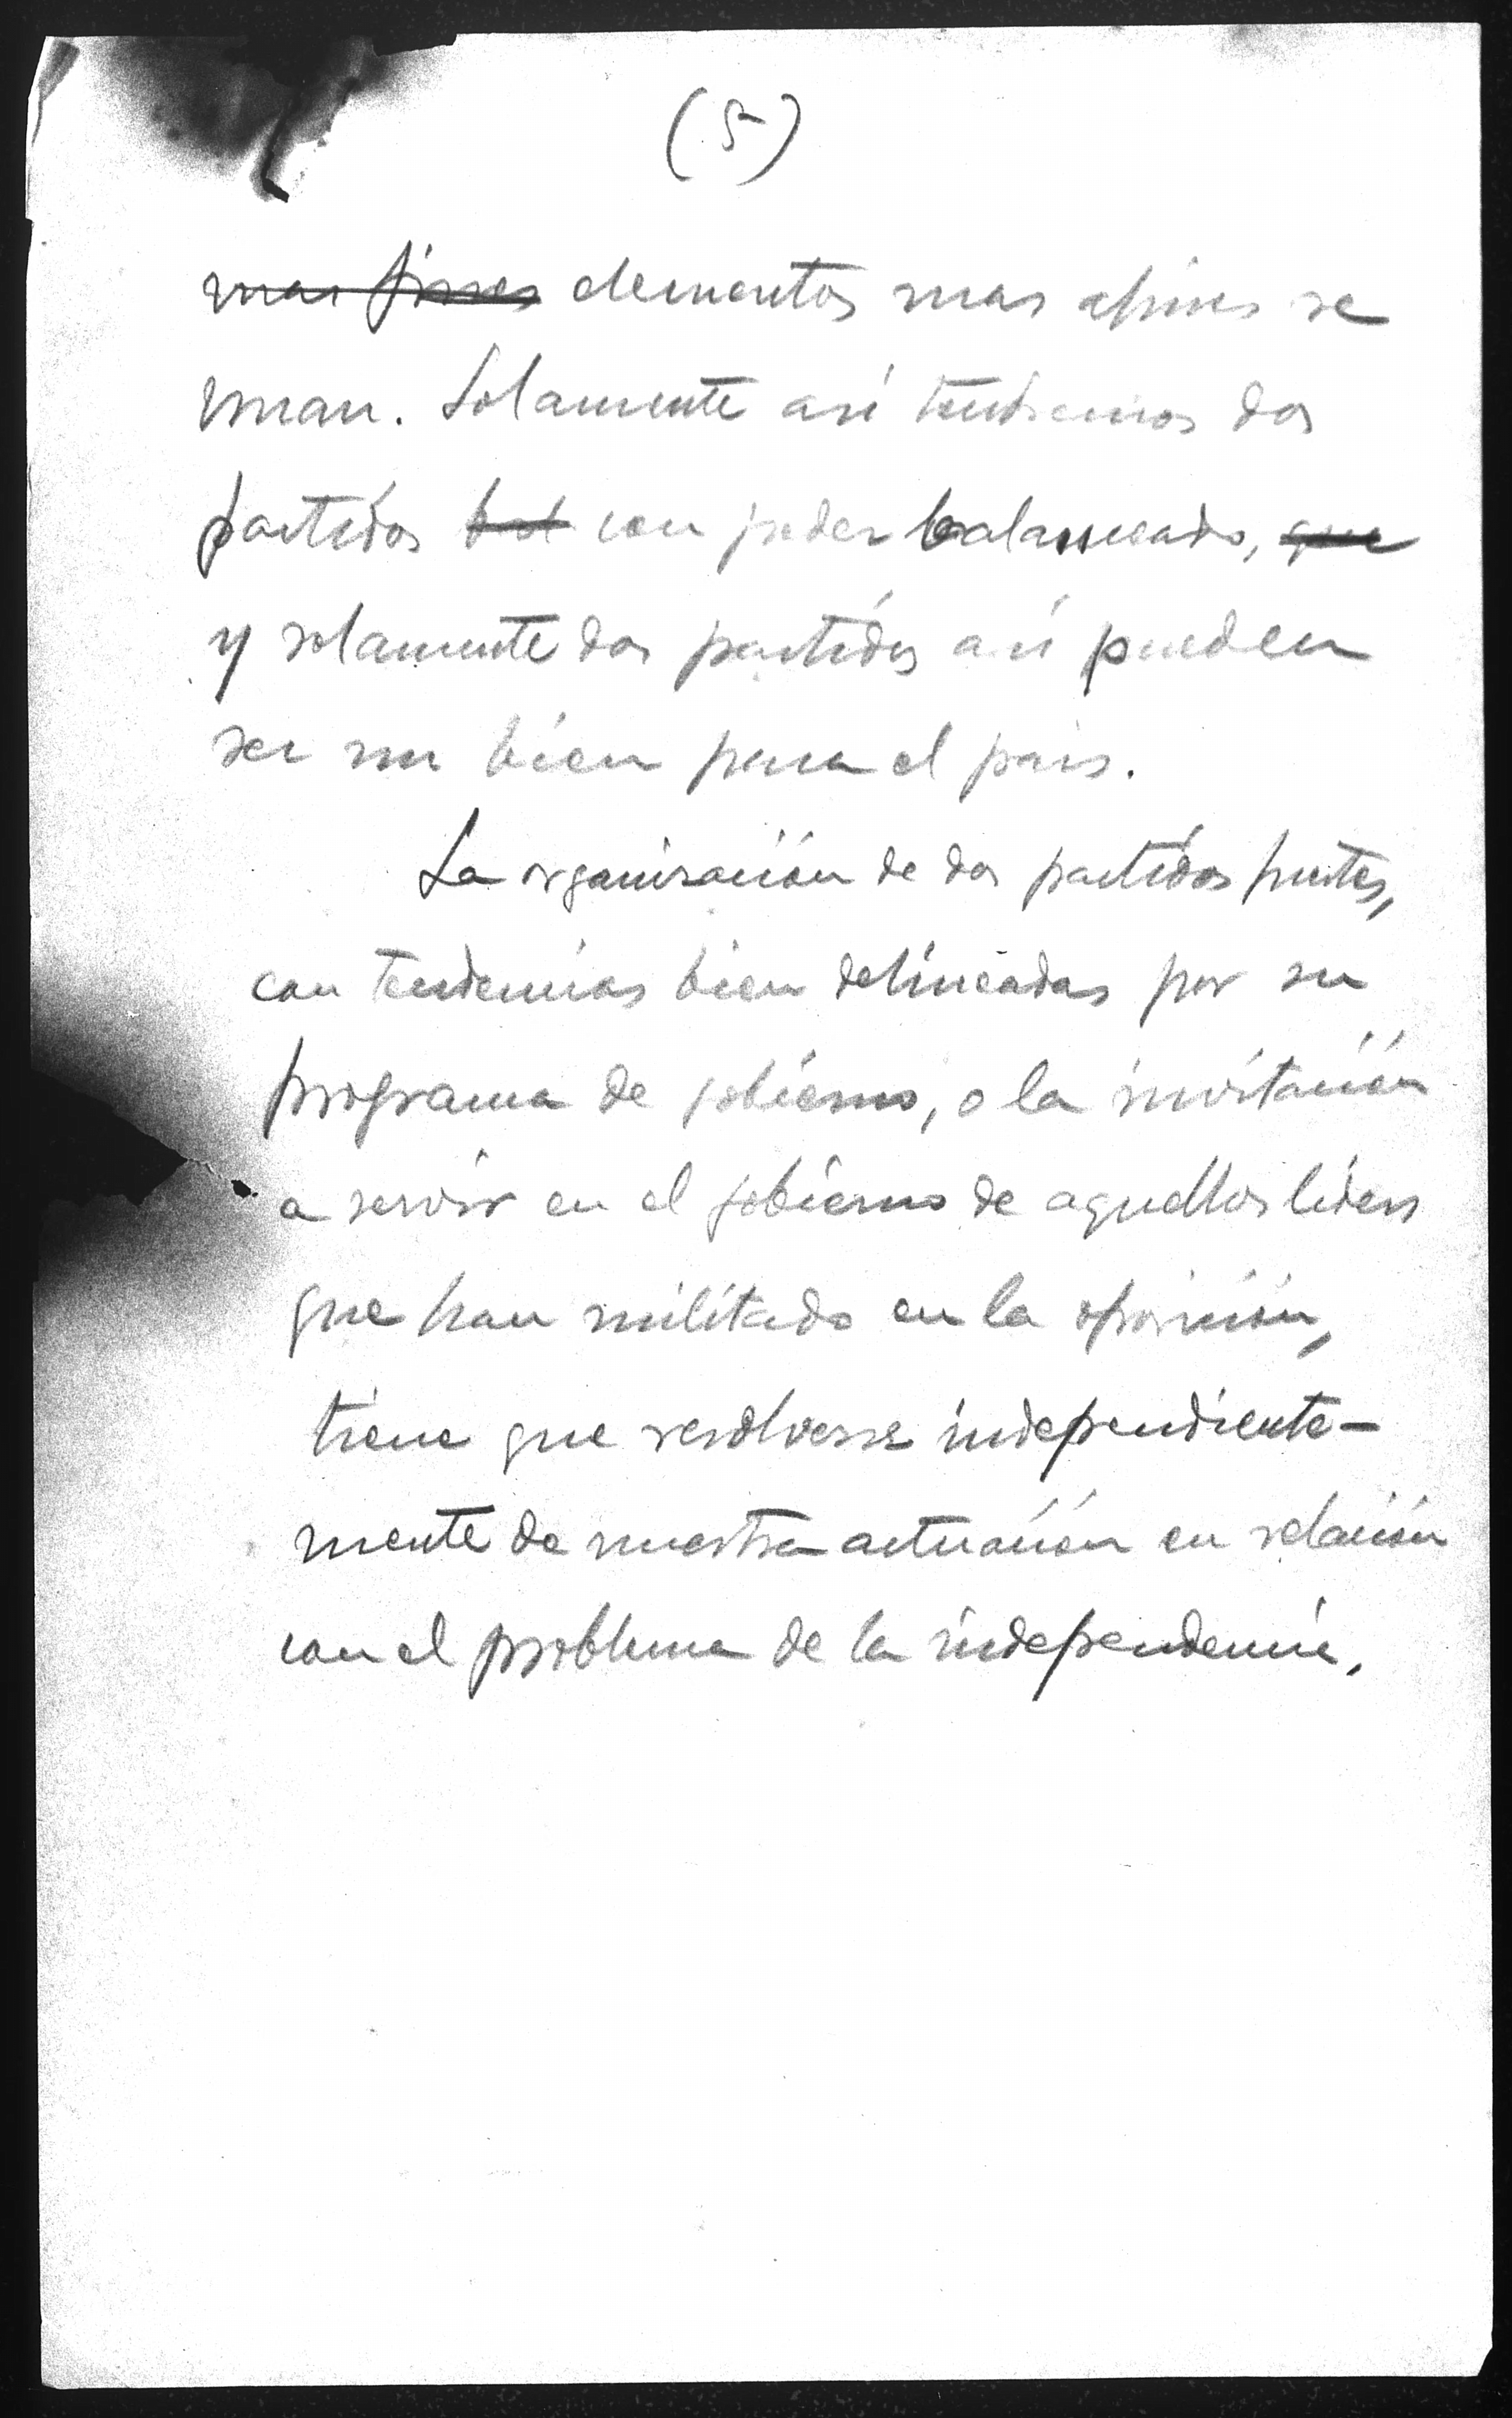 (5)
mas fines elementos mas afines se
unan. Solamente asi tendremos dos
partidos bal con poder balanceado, que
y solamente dos partidos asi pueden
ser un bien para el pais.
La organisación de dos partidos fuertes,
con tendencias bien delineadas por su
programa de gobierno, o la invitación
a servir en el gobierno de aquellos liders
que han militado en la oposición,
tiene que resolverse independiente-
mente de nuestra actuación en relación
con el problema de la independencia.